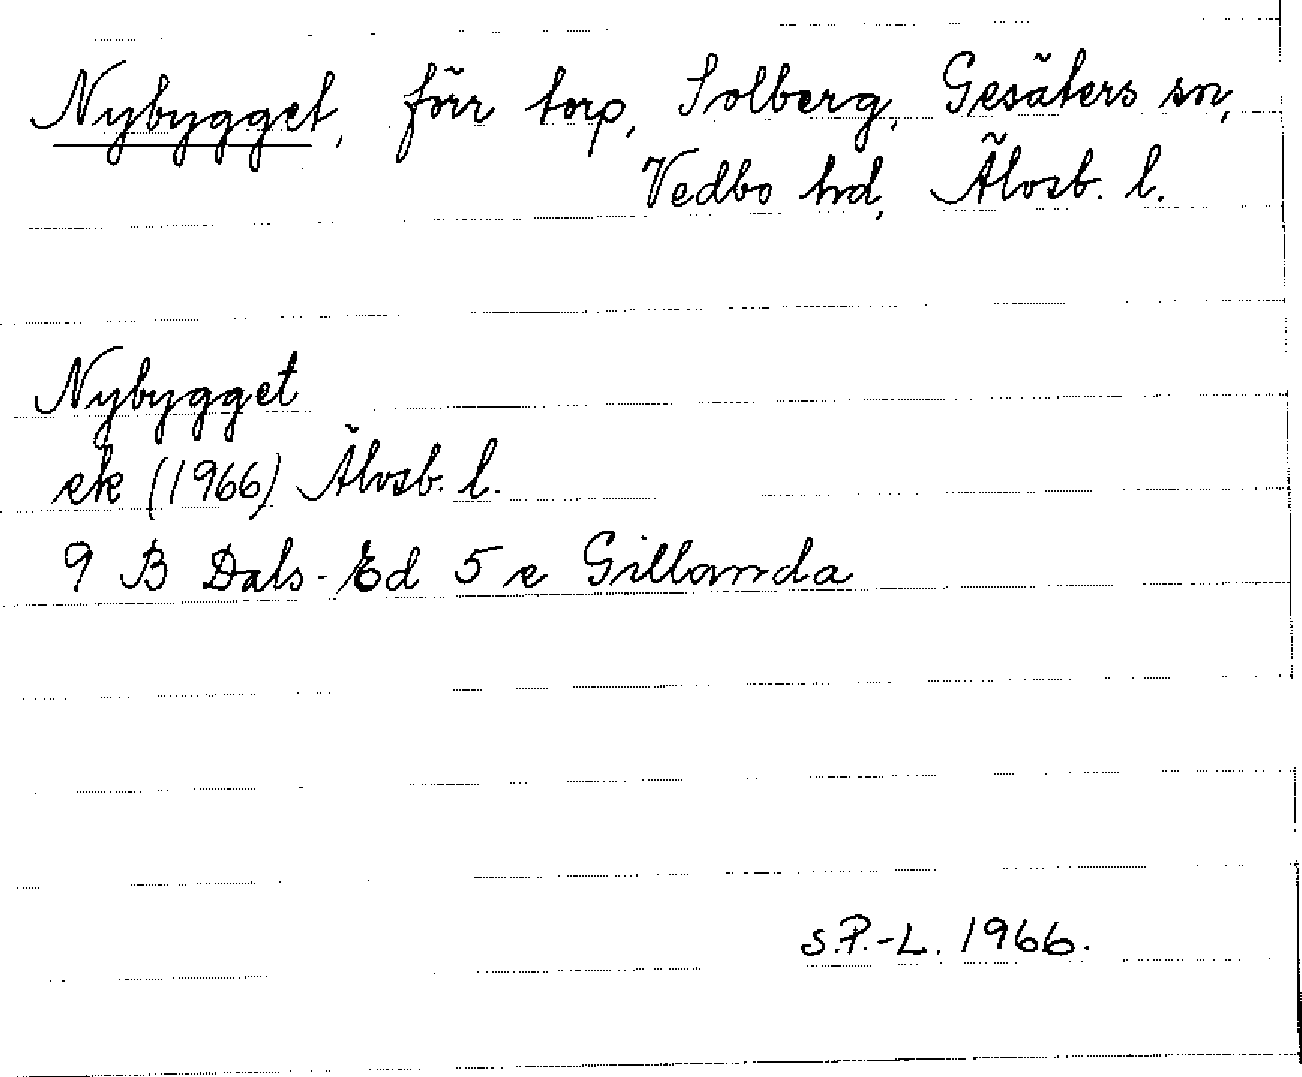 Nybygget, förr torp, Solberg, Gesäters sn,
Vedbo hd, Älvsb. l.
Nybygget
ek (1966) Älvsb. l.
9 B Dals-Ed 5 e Gillanda
S.P.-L. 1966.